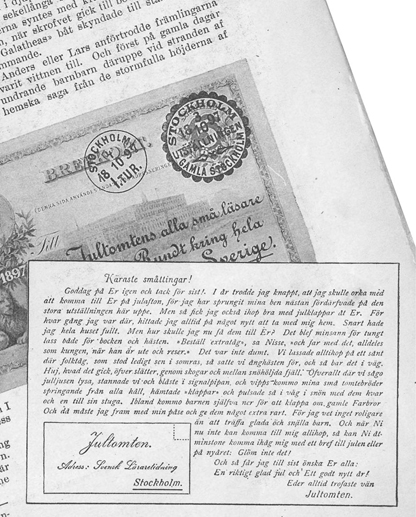 sekellånga
rna syntes med kri
n, när skrofvet gick till be
Galatheas» båt skyndade till stan
mmande.
Anders eller Lars anförtrodde främlingarna
varit vittnen till. Och först på gamla dagar
undrande barnbarn däruppe vid stranden af
hemska saga från de stormfulla höjderna af
BREFKORT.
STOCKHOLM
18 10 97
1.TUR.
STOCKHOLM
18 10 97
UTSTÄLLNINGEN
GAMLA STOCKHOLM
1897
Till
Jultomtens alla små läsare
Rundt kring hela
Sverige.
Käraste småttingar!
Goddag på Er igen och tack för sist!. I år trodde jag knappt, att jag skulle orka med
att komma till Er på julafton, för jag har sprungit mina ben nästan fördärfvade på den
stora utställningen här uppe. Men så fick jag också ihop bra med julklappar åt Er. För
hvar gång jag var där, hittade jag alltid på något nytt att ta med mig hem. Snart hade
jag hela huset fullt. Men hur skulle jag nu få dem till Er? Det blef minsann för tungt
lass både för bocken och hästen. »Beställ extratåg», sa Nisse, »och far med det, alldeles
som kungen, när han är ute och reser.» Det var inte dumt. Vi lassade alltihop på ett sånt
där foldtåg, som stod ledigt sen i somras, så satte vi ånghästen för, och så bar det i väg.
Huj, hvad det gick, öfver slätter, genom skogar och mellan snöhöljda fjäll. Öfverallt där vi sågo
julljusen lysa, stannade vi och blåste i signalpipan, och vipps kommo mina små tomtebröder
springande från alla håll, hämtade »klappar» och pulsade så i väg i snön med dem hvar
och en till sin stuga. Ibland kommo barnen själfva ner för att klappa om gamle Farbror
Och då måste jag fram med min påse och ge dem något extra rart. För jag vet inget roligare
än att träffa glada och snälla barn. Och när Ni
nu inte kan komma till mig allihop, så kan Ni åt-
minstone komma ihåg mig med ett bref till julen eller
på nyåret: Glöm inte det!
Och så får jag till sist önska Er alla:
En riktigt glad jul och Ett godt nytt år!
Eder alltid trofaste vän
Jultomten.
Jultomten.
Adress: Svensk Läraretidning
Stockholm.